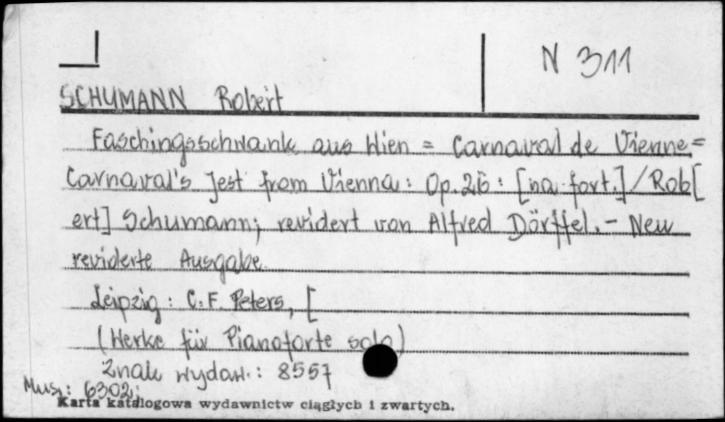 N 311
SCHUMANN Robert
Faschingsschwank aus Wien = Carnaval de Vienne =
Carnaval's Jest from Vienna : Op. 26 : [na fort.] / Rob[
ert] Schumann; revidert von Alfred Dörffel. - Neu
reviderte Ausgabe.
Leipzig : C. F. Peters, [
(Werke für Pianoforte solo)
Znak wydaw. : 8557
Mus. : 6302
Karta katalogowa wydawnictw ciągłych i zwartych.